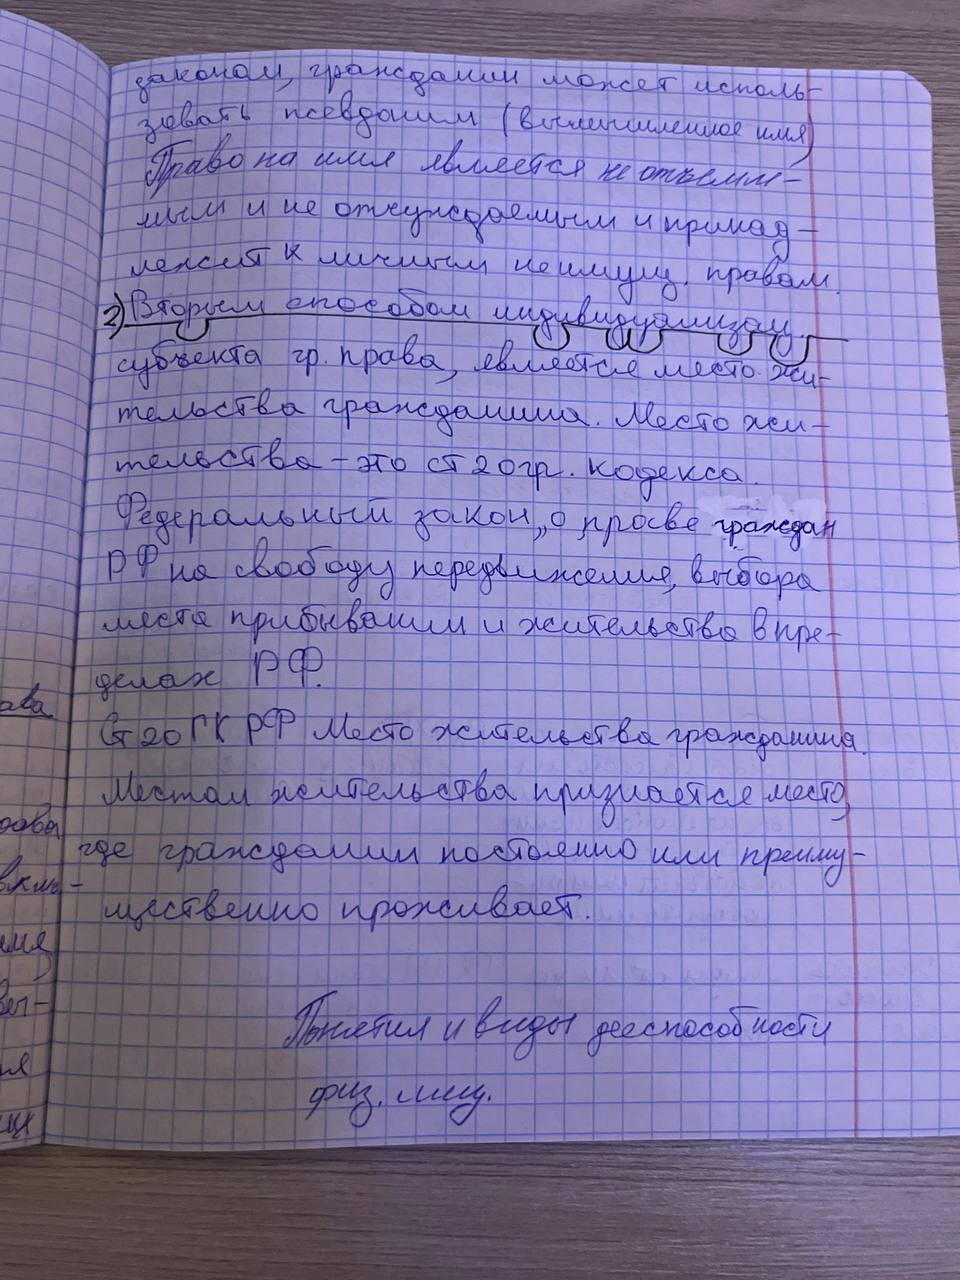 законом, гражданин может исполь-
зовать псевдоним (вымышленное имя)
Право на имя является не отъемли-
мым и не отчуждаемым и принад-
лежит к личным неимущ. правам.
2) Вторым способом индивидуализац
субъекта гр. права, является место жи-
тельства гражданина. Место жи-
тельства – это ст 20 гр. кодекса.
Федеральный закон „о праве граждан
РФ на свободу передвижения, выбора
места прибывании и жительства в пре-
делах РФ.
Ст 20 ГК РФ Место жительства гражданина.
Местом жительства признается место,
где гражданин постоянно или преиму-
щественно проживает.
Понятия и виды дееспособности
физ. лиц.
ава